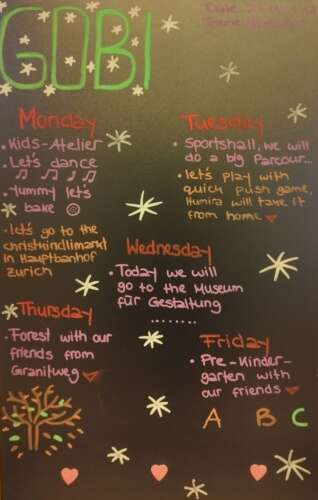 GOBI
Monday
• Kids-Atelier
• Let's dance
• Yummy let's
bake
• let's go to the
christkindlimarkt
in Hauptbanhof
Zurich
Tuesday
• Sportshall, we will
do a big Parcour...
• let's play with
quick push game,
Humira will take it
from home
Wednesday
• Today we will
go to the Museum
für Gestaltung
........
Thursday
• Forest with our
friends from
Granitweg
Friday
• Pre-Kinder-
garten with
our friends
A B C